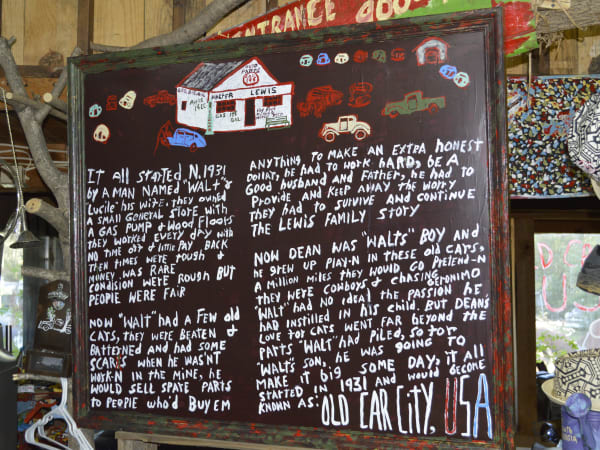 ENTRANCE DOOR
WALTER LEWIS
It all started N. 1931
by A MAN NAMED "WALT" &
Lucile his wife. they owned
A small General Store with
A GAS PUMP & WOOD Floors
They worked EVERY dAY with
NO time off & little PAY BACK
then times were rough &
MONEY WAS RARE
CONDItION WERE ROUGH BUT
PEOPLE WERE FAIR
NOW "WALT" HAD A FEW old
CATS, they WERE BEATEN &
BATTERNED AND HAD SOME
SCARS WHEN HE WASN'T
WORK-N IN tHE MINE, HE
WOULD SELL SPARE PARTS
to PEOPLE WHO'D BUY EM
ANYTHING TO MAKE AN EXTRA HONEST
DOLLAR, HE HAD TO WORK HARD, BE A
GOOD HUSBAND AND FATHER, HE HAD TO
PROVIDE AND KEEP AWAY THE WORRY
THEY HAD TO SURVIVE AND CONTINUE
THE LEWIS FAMILY STORY
NOW DEAN WAS "WALTS" BOY AND
HE GREW UP PLAY-N IN THESE OLD CARS,
A MILLION MILES THEY WOULD GO PRETEND-N
THEY WERE COWBOYS & CHASING GERONIMO
"WALT" HAD NO IDEAL THE PASSION HE
HAD INSTILLED IN HIS CHILD. BUT DEAN'S
LOVE FOR CATS WENT FAR BEYOND THE
PARTS "WALT" HAD PILED, SO FOR
"WALTS SON, HE WAS GOING TO
MAKE IT BIG SOME DAY, IT ALL
STARTED IN 1931 AND WOULD BECOME
KNOWN AS: OLD CAR CITY, USA